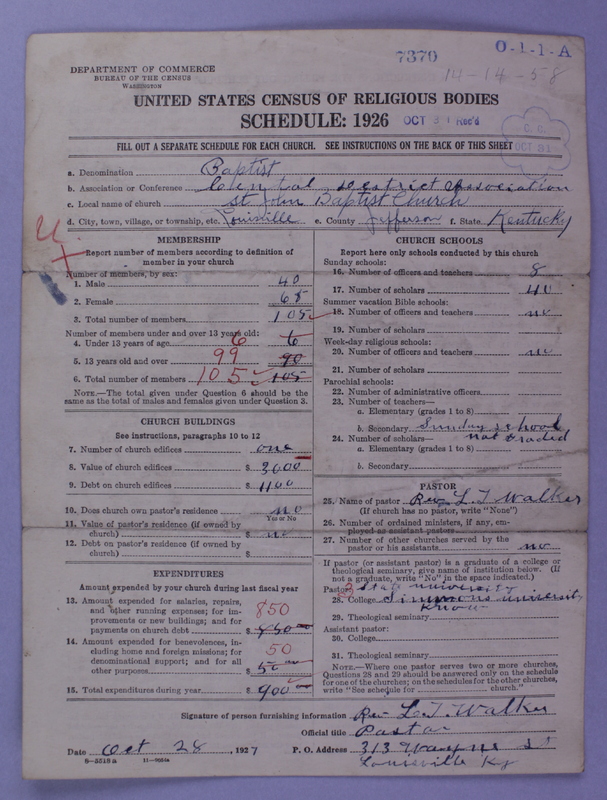 7370
O-1-1-A
14-14-58
DEPARTMENT OF COMMERCE
BUREAU OF THE CENSUS
WASHINGTON
UNITED STATES CENSUS OF RELIGIOUS BODIES
SCHEDULE: 1926
OCT 31 Rec'd
OCT 31
FILL OUT A SEPARATE SCHEDULE FOR EACH CHURCH. SEE INSTRUCTIONS ON THE BACK OF THIS SHEET
a. Denomination Baptist
b. Association or Conference Central District Association
c. Local name of church St John Baptist Church
d. City, town, village, or township, etc. Louisville e. County Jefferson f. State Kentucky
MEMBERSHIP
Report number of members according to definition of
member in your church
Number of members, by sex:
1. Male 40
2. Female 65
3. Total number of members 105
Number of members under and over 13 years old:
4. Under 13 years of age 6 6
5. 13 years old and over 99 90
6. Total number of members 105 105
NOTE.—The total given under Question 6 should be the
same as the total of males and females given under Question 3.
CHURCH BUILDINGS
See instructions, paragraphs 10 to 12
7. Number of church edifices one
8. Value of church edifices $ 3600
9. Debt on church edifices $ 1100
10. Does church own pastor's residence? no
Yes or No
11. Value of pastor's residence (if owned by
church) $ no
12. Debt on pastor's residence (if owned by
church) $
EXPENDITURES
Amount expended by your church during last fiscal year
13. Amount expended for salaries, repairs,
and other running expenses; for im-
provements or new buildings; and for
payments on church debt 850 $ 850 00
14. Amount expended for benevolences, in-
cluding home and foreign missions; for
denominational support; and for all
other purposes 50 $ 50 00
15. Total expenditures during year $ 900 00
CHURCH SCHOOLS
Report here only schools conducted by this church
Sunday schools:
16. Number of officers and teachers 8
17. Number of scholars 40
Summer vacation Bible schools:
18. Number of officers and teachers no
19. Number of scholars
Week-day religious schools:
20. Number of officers and teachers no
21. Number of scholars
Parochial schools:
22. Number of administrative officers
23. Number of teachers—
a. Elementary (grades 1 to 8)
b. Secondary Sunday school
24. Number of scholars— not Graded
a. Elementary (grades 1 to 8)
b. Secondary
PASTOR
25. Name of pastor Rev L. T. Walker
(If church has no pastor, write "None")
26. Number of ordained ministers, if any, em-
ployed as assistant pastors
27. Number of other churches served by the
pastor or his assistants no
If pastor (or assistant pastor) is a graduate of a college or
theological seminary, give name of institution below. (If
not a graduate, write "No" in the space indicated.)
Pastor: State university
28. College Simmons university
know
29. Theological seminary
Assistant pastor:
30. College
31. Theological seminary
NOTE.—Where one pastor serves two or more churches,
Questions 28 and 29 should be answered only on the schedule
for one of the churches; on the schedules for the other churches,
write "See schedule for church."
Signature of person furnishing information Rev L. T. Walker
Official title Pastor
Date Oct 28, 1927 P. O. Address 313 Wayne St
Louisville Ky
8-5518 a